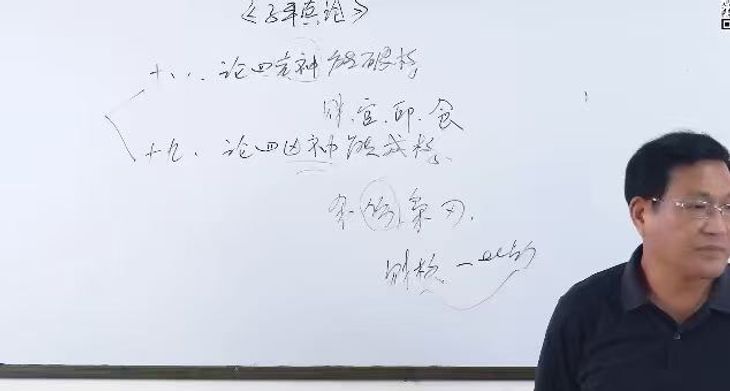 《子平真诠》
十八、论四吉神能破格
财、官、印、食
十九、论四凶神能成格
杀、伤、枭、刃.
财格